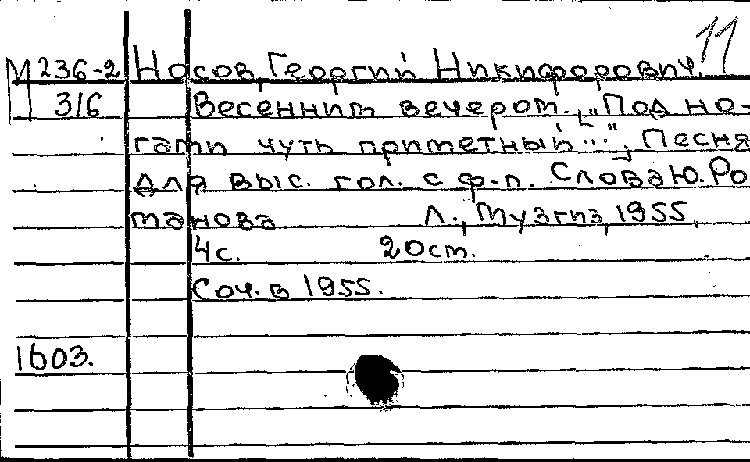 11
М 236-2 Носов, Георгий Никифорович.
316 Весенним вечером. „Под но-
гами чуть приметный...", Песня
для выс. гол. с ф-п. Слова Ю. Ро
манова Л., Музгиз, 1955.
4с. 20см.
Соч. в 1955.
1603.